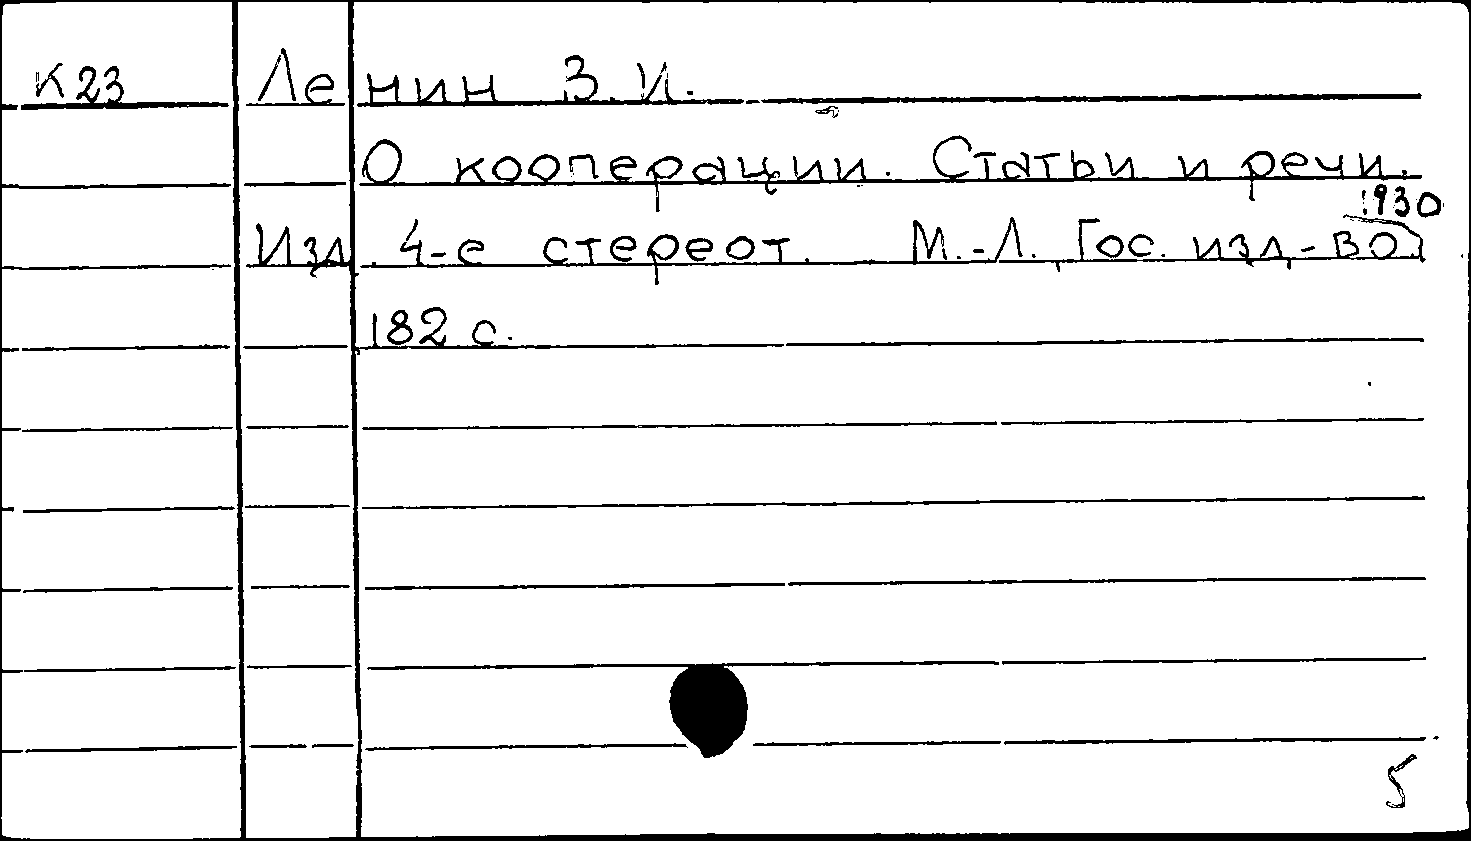 К23 Ленин В.И.
О кооперации. Статьи и речи.
Изд. 4-е стереот. М.-Л., Гос. изд-во, 1930
182 с.
5